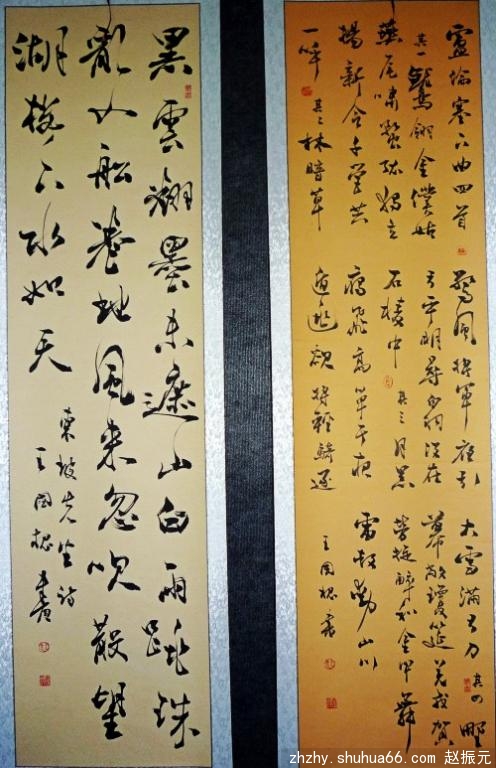 盧綸塞下曲四首
其一鷲翎金僕姑
燕尾繡蝥弧獨立
揚新令千營共
一呼其二林暗草
驚風將軍夜引
弓平明尋白羽沒在
石稜中其三月黑
雁飛高單于夜
遁逃欲將輕騎逐
大雪滿弓刀其四野
幕敞瓊筵羌戎賀
勞旋醉和金甲舞
雷鼓動山川
王国書
黑雲翻墨未遮山白雨跳珠
亂入船卷地風来忽吹散望
湖樓下水如天
東坡先生詩
王国書
zhzhy.shuhua66.com 赵振元